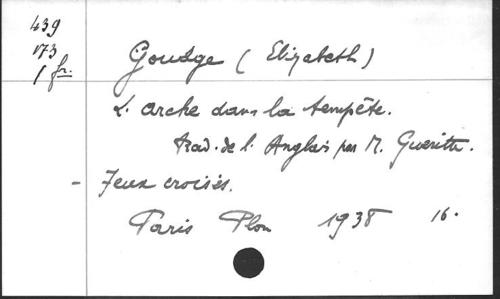 439
173
1 fr.
Goudge (Elizabeth)
L'arche dans la tempête.
Trad. de l'Anglais par M. Gueritte.
- Feux croisés.
Paris Plon 1938 16.